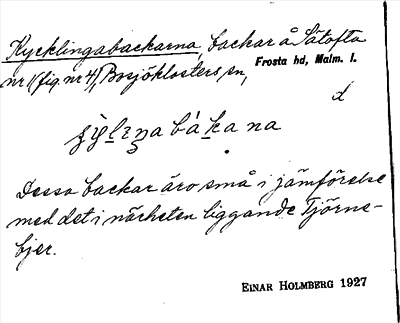 Kycklingabackarna, backar å Sätofta
nr 1 (fig nr 4), Bosjöklosters sn, Frosta hd, Malm. l.
d
Dessa backar äro små i jämförelse
med det i närheten liggande Tjörne-
bjer.
EINAR HOLMBERG 1927